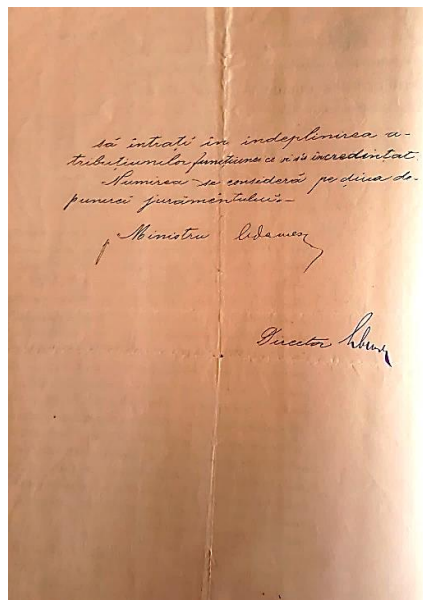 să intrați în indeplinirea a-
tribuțiunilor funcțiunei ce vi s'a incredințat.
Numirea se consideră pe ziua de-
punerei jurământului.-
p Ministru
Director